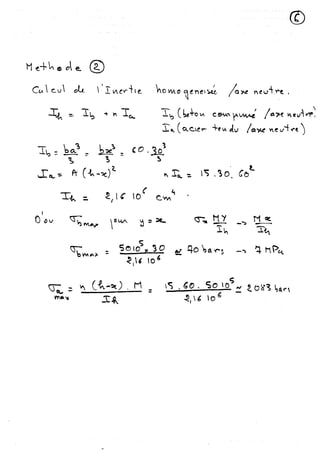 6
Méthode 2
Calcul de l'Inertie homogénéisée /axe neutre.
Ih = Ib + n Ia Ib (béton comprimé /axe neutre)
Ia (acier tendu /axe neutre)
Ib = ba³/3 = bx³/3 = 60.30³/3
Ia = A (h-x)² n Ia = 15.30.60²
Ih = 2,16 10⁶ cm⁴
D'où σbmax pour y = x σ = MY/Ih → Mx/Ih
σbmax = 50 10⁵ x 30 / 2,16 10⁶ ≃ 70 bars → 7 MPa
σa max = n (h-x). M / Ih = 15.60. 50 10⁵ / 2,16 10⁶ ≃ 2083 bars